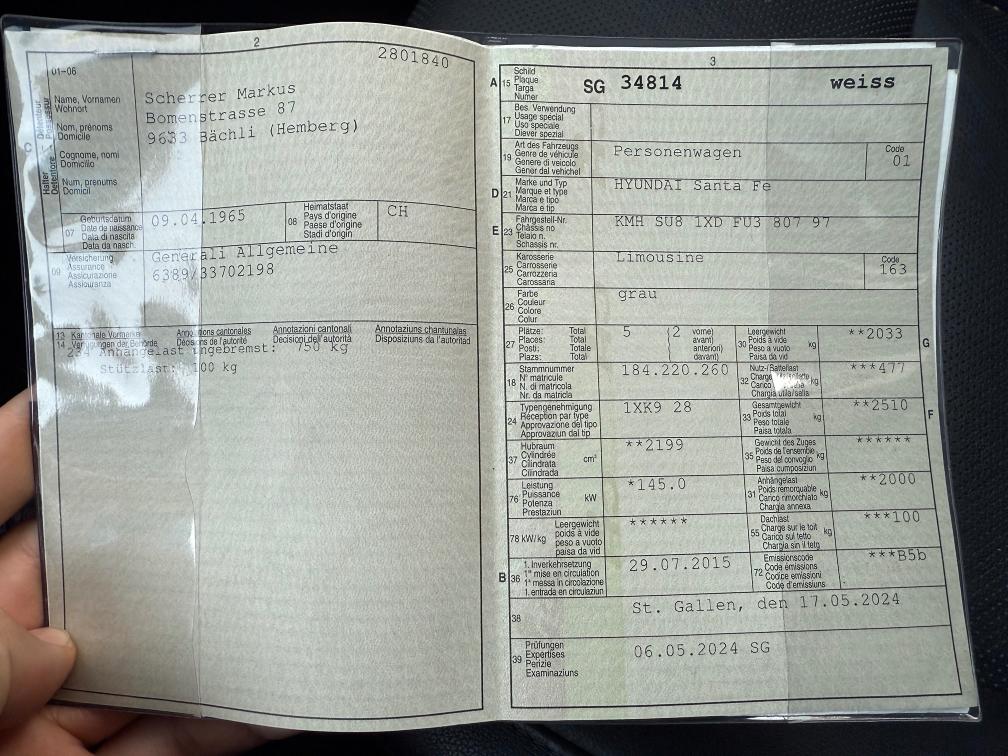 2
2801840
01-06
C
Halter
Détenteur
Detentore
Possessur
Name, Vornamen
Wohnort
Nom, prénoms
Domicile
Cognome, nomi
Domicilio
Num, prenums
Domicil
Scherrer Markus
Bomenstrasse 87
9633 Bächli (Hemberg)
07
Geburtsdatum
Date de naissance
Data di nascita
Data da nasch.
09.04.1965
08
Heimatstaat
Pays d'origine
Paese d'origine
Stadi d'origin
CH
09
Versicherung
Assurance
Assicurazione
Assicuranza
Generali Allgemeine
6389/33702198
13 Kantonale Vermerke
14 Verfügungen der Behörde
Annotations cantonales
Décisions de l'autorité
Annotazioni cantonali
Decisioni dell'autorità
Annotaziuns chantunalas
Disposiziuns da l'autoritad
234 Anhängelast ungebremst: 750 kg
Stützlast: 100 kg
3
A 15
Schild
Plaque
Targa
Numer
SG 34814 weiss
17
Bes. Verwendung
Usage spécial
Uso speciale
Diever spezial
19
Art des Fahrzeugs
Genre de véhicule
Genere di veicolo
Gener dal vehichel
Personenwagen
Code
01
D 21
Marke und Typ
Marque et type
Marca e tipo
Marca e tip
HYUNDAI Santa Fe
E 23
Fahrgestell-Nr.
Châssis no
Telaio n.
Schassis nr.
KMH SU8 1XD FU3 807 97
25
Karosserie
Carrosserie
Carrozzeria
Carossaria
Limousine
Code
163
26
Farbe
Couleur
Colore
Colur
grau
27
Plätze: Total
Places: Total
Posti: Totale
Plazs: Total
5 (2 vorne)
avant)
anteriori)
davant)
30
Leergewicht
Poids à vide
Peso a vuoto
Paisa da vid
kg
**2033
G
18
Stammnummer
N° matricule
N. di matricola
Nr. da matricla
184.220.260
32
Nutz-/Sattellast
Charge
Carico
Chargia ütila/sella
kg
***477
24
Typengenehmigung
Réception par type
Approvazione del tipo
Approvaziun dal tip
1XK9 28
33
Gesamtgewicht
Poids total
Peso totale
Paisa totala
kg
**2510
F
37
Hubraum
Cylindrée
Cilindrata
Cilindrada
cm³
**2199
35
Gewicht des Zuges
Poids de l'ensemble
Peso del convoglio
Paisa cumposiziun
kg
******
76
Leistung
Puissance
Potenza
Prestaziun
kW
*145.0
31
Anhängelast
Poids remorquable
Carico rimorchiato
Chargia annexa
kg
**2000
78 kW/kg
Leergewicht
poids à vide
peso a vuoto
paisa da vid
******
55
Dachlast
Charge sur le toit
Carico sul tetto
Chargia sin il tetg
kg
***100
B 36
1. Inverkehrsetzung
1re mise en circulation
1a messa in circolazione
1. entrada en circulaziun
29.07.2015
72
Emissionscode
Code émissions
Codice emissioni
Code d'emissiuns
***B5b
38
St. Gallen, den 17.05.2024
39
Prüfungen
Expertises
Perizie
Examinaziuns
06.05.2024 SG